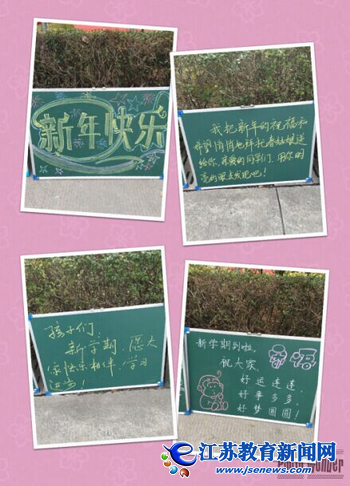 新年快乐
我把新年的祝福和
希望悄悄地拜托春姑娘送
给你,亲爱的同学们,用你明
亮的眼去发现吧!
孩子们:
新学期,愿大
家快乐相伴,学习
进步!
新学期到啦,
祝大家
好运连连
好事多多,
好梦圆圆!
Photo Wonder
江苏教育新闻网
www.jsenews.com